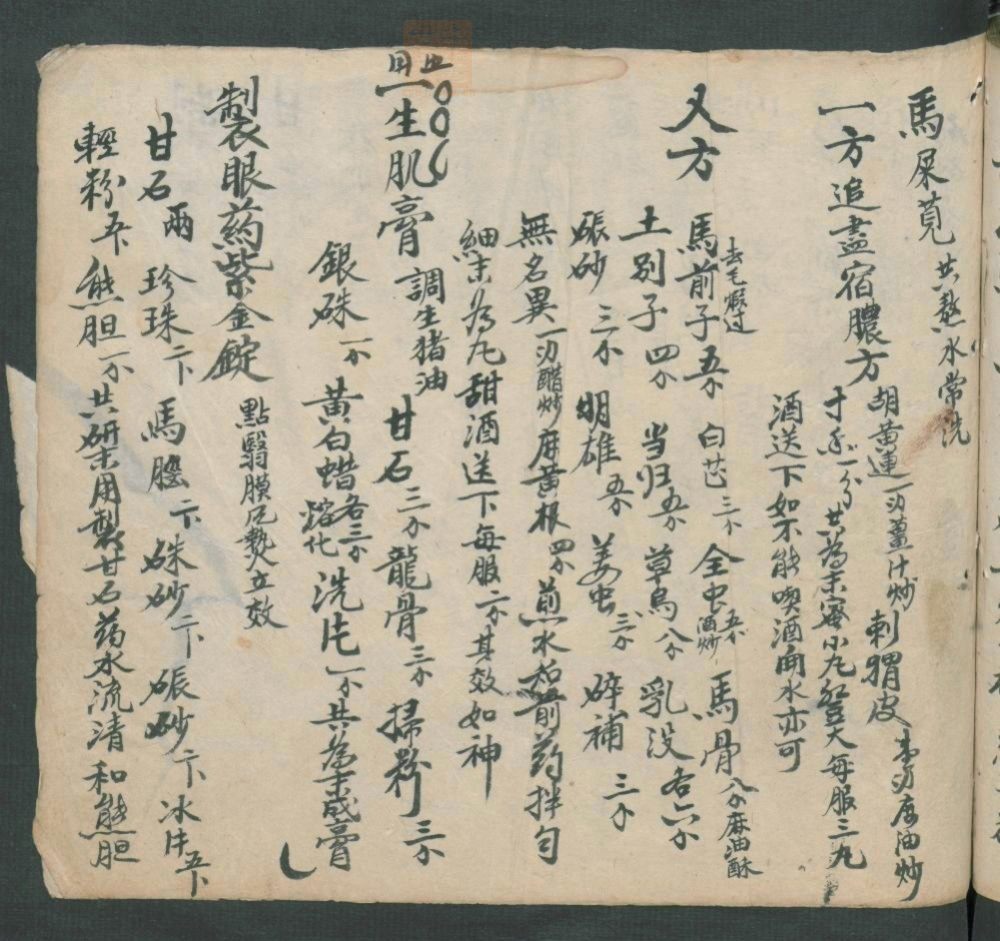 馬屎莧 共熬水常洗
一方追盡宿膿方 胡黃連一刃薑汁炒 刺猬皮 刃麻油炒
一分共為末蜜小丸莞大每服三九
酒送下如不能喫酒用水亦可
又方 馬前子五分 去毛煆过 白芷三分 全虫五分酒炒 馬骨八分麻油酥
土別子四分 当归五分 草烏八分 乳没各六分
砂三分 明雄五分 姜虫三分 碎補三分
無名異一刃醋炒 麻黄根四分 煎水和前药拌匀
細末為丸甜酒送下每服二分其效如神
生肌膏 調生猪油 甘石三分 龍骨三分 掃粉三分
銀硃一分 黄白蜡各三分熔化 洗片一分 共為末成膏
製眼药紫金錠 點翳膜 立效
甘石兩 珍珠二下 馬 二下 硃砂二下 砂二下 冰片五下
輕粉五下 熊胆一分 共研末用製甘石药水流清和熊胆